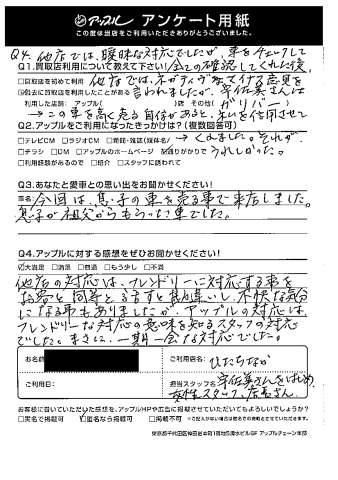 アップル アンケート用紙
この度は当店をご利用いただきありがとうございました。
Q4. 他店では、曖昧な対応でしたが、車をチェックして
Q1.買取店利用について教えて下さい! 全ての確認してくれた後、
□買取店を初めて利用 他店では、ネガティブな
☑過去に買取店を利用したことがある 言われましたが、宇佐美さんは
利用した店前: アップル( )店 その他( ガリバー )
→この車を高く売る自信があると、 を信用させて
Q2.アップルをご利用になったきっかけは?(複数回答可)
□テレビCM □ラジオCM □新聞・雑誌(媒体名) くれました。それが、
□チラシ □DM □アップルのホームページ ☑通りがかりで うれしかった。
□利用経験があるので □紹介 □スタッフに誘われて
Q3.あなたと愛車との思い出をお聞かせください!
車名 今回は、息子の車を売る事で来店しました。
息子が祖父からもらった車でした。
Q4.アップルに対する感想をぜひお聞かせください!
☑大満足 □満足 □普通 □もう少し □不満
他店の対応は、フレンドリーに対応する事を
お客と同等と 勘違いし、不快な気分
になる事もありましたが、アップルの対応は、
フレンドリーな対応の意味を知るスタッフの対応
でした。まさに、一期一会な対応でした。
お名前
ご利用店名: ひたちなか
ご利用日:
担当スタッフ名 宇佐美さんをはじめ
女性スタッフ、店長さん。
お客様に書いていただいた感想を、アップルHPや広告に掲載させていただいてもよろしいでしょうか?
□実名で掲載可 ☑匿名なら掲載可 □掲載不可 ※ご了承いただけない場合は無断で掲載することはございません。
東京都千代田区神田岩本町1番地5清水ビル6F アップルチェーン本部